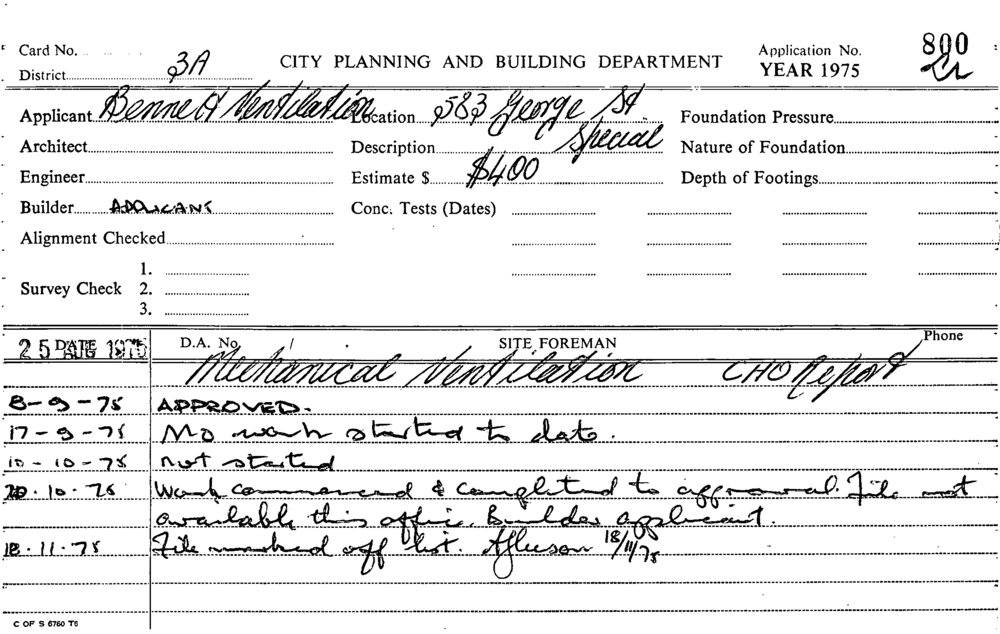 Card No. 800
District 3A CITY PLANNING AND BUILDING DEPARTMENT Application No. YEAR 1975
Applicant Bennett Ventilation Location 583 George St Foundation Pressure
Architect Description Special Nature of Foundation
Engineer Estimate $ $400 Depth of Footings
Builder APPLICANT Conc. Tests (Dates)
Alignment Checked
1.
Survey Check 2.
3.
25 AUG 1975 DATE D.A. No. SITE FOREMAN Phone
Mechanical Ventilation CHO Report
8-9-75 APPROVED.
17-9-75 No work started to date.
10-10-75 not started
20.10.75 Work commenced & completed to approval. File not
available this office. Builder applicant.
18.11.75 File marked off list. 18/11/75
C OF S 6760 T6